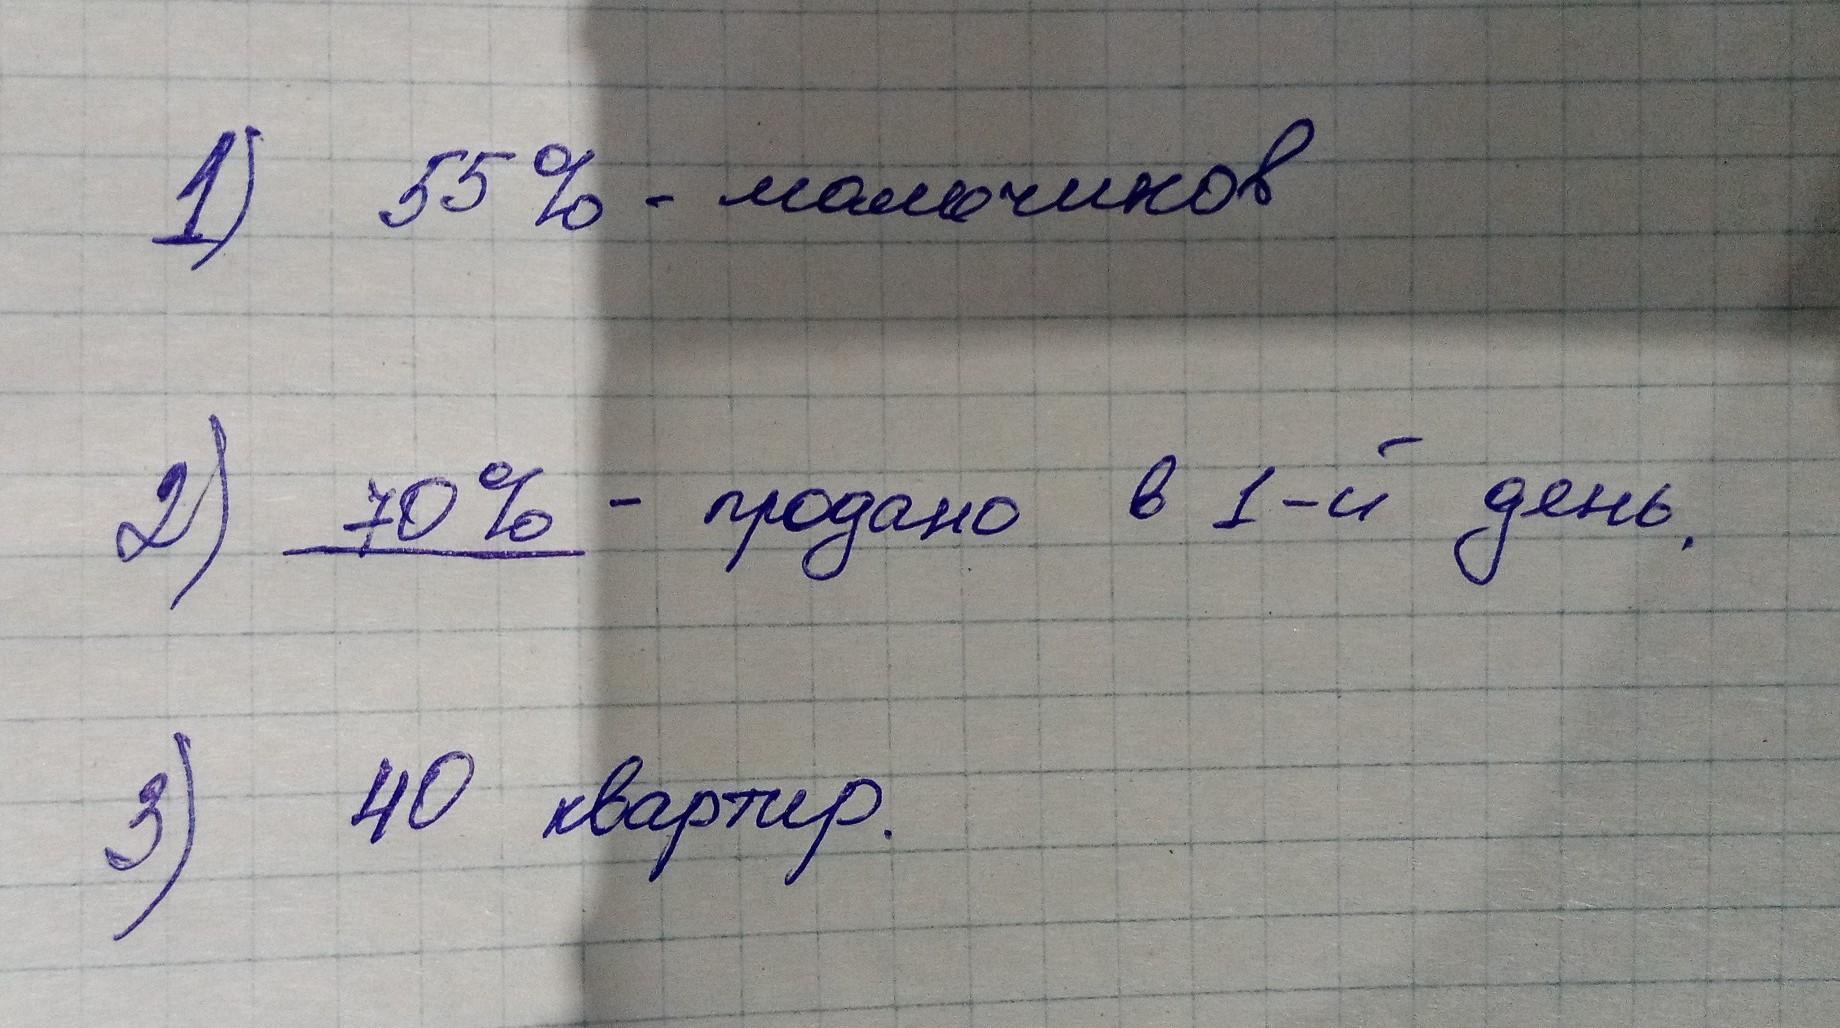 1) 55% - мальчиков
2) 70% - продано в 1-й день.
3) 40 квартир.